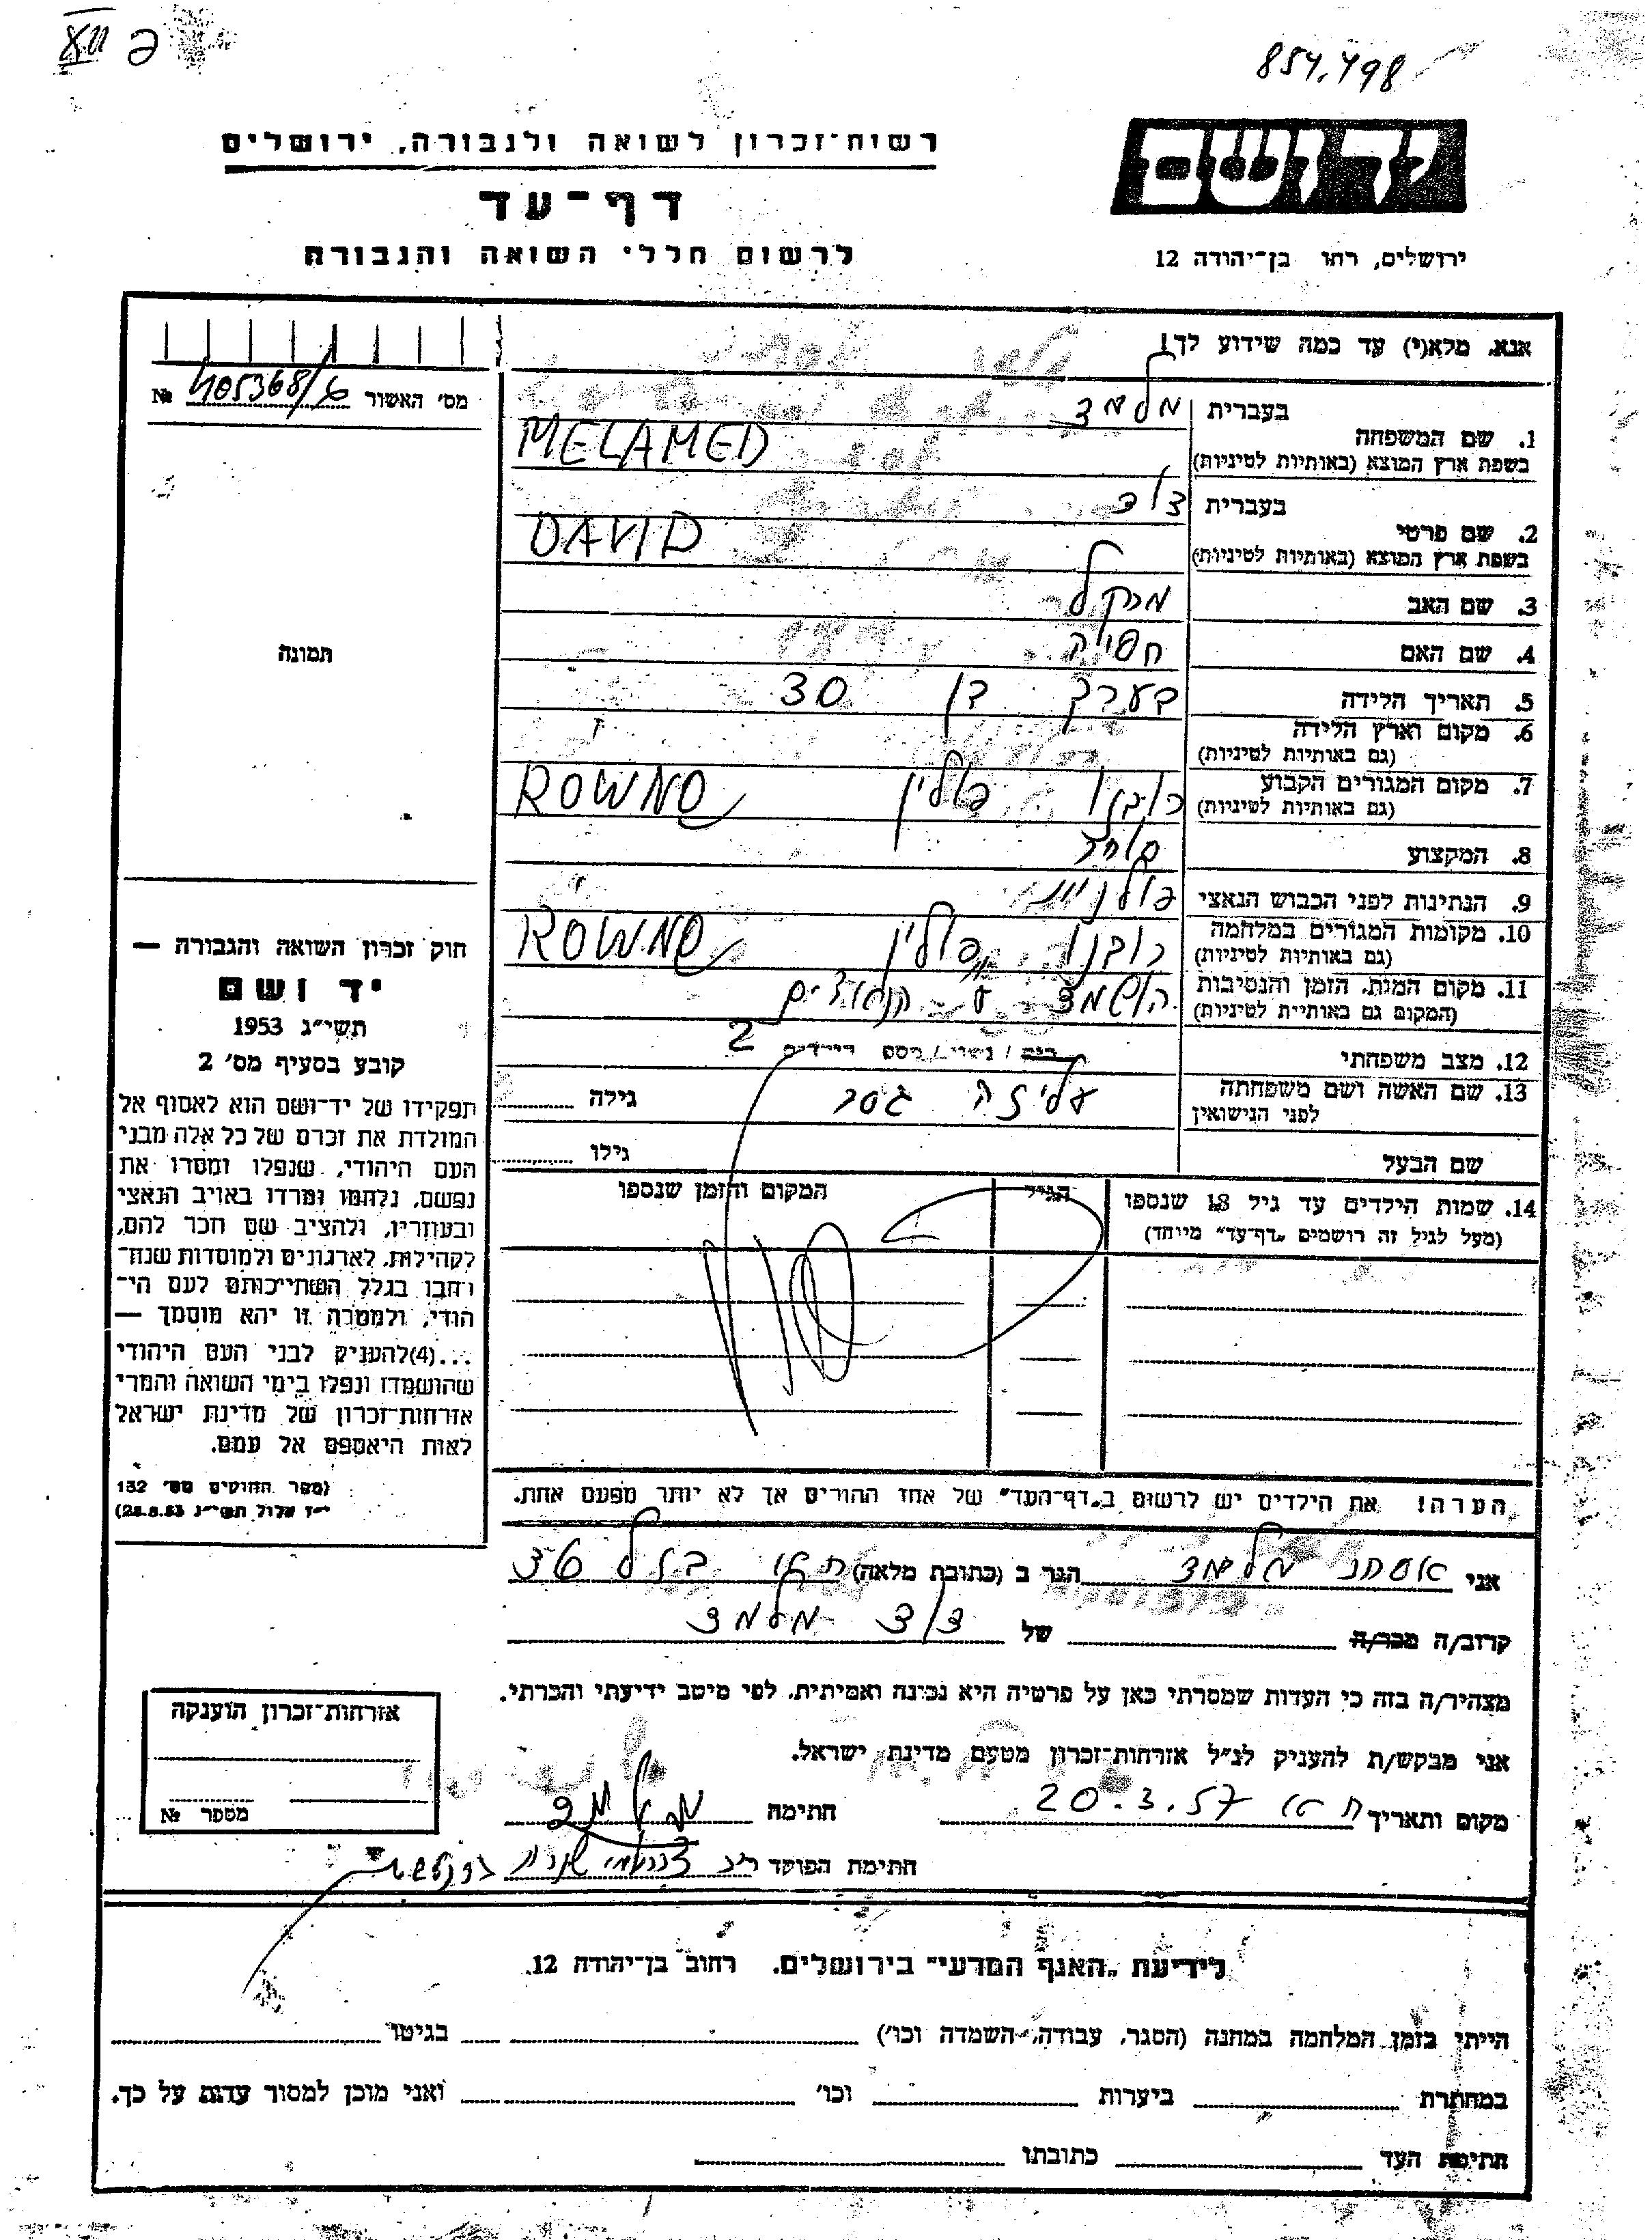 854.498
רשות־זכרון לשואה ולגבורה, ירושלים
יד ושם
דף־עד
לרשום חללי השואה והגבורה
ירושלים, רחו בן־יהודה 12
אנא, מלא(י) עד כמה שידוע לך!
מס׳ האשור № 405368/6
1. שם המשפחה בעברית מלמד
בשפת ארץ המוצא (באותיות לטיניות) MELAMED
2. שם פרטי בעברית דוד
בשפת ארץ המוצא (באותיות לטיניות) DAVID
3. שם האב מרקל
4. שם האם חסיה
5. תאריך הלידה בערך בן 30
6. מקום וארץ הלידה
(גם באותיות לטיניות)
7. מקום המגורים הקבוע רובנו פולין ROWNO
(גם באותיות לטיניות)
8. המקצוע סוחר
9. הנתינות לפני הכבוש הנאצי פולנית
10. מקומות המגורים במלחמה רובנו פולין ROWNO
(גם באותיות לטיניות)
11. מקום המות, הזמן והנסיבות הושמד ע״י הנאצים
(המקום גם באותיות לטיניות)
12. מצב משפחתי רוק / נשוי / מספר הילדים 2
13. שם האשה ושם משפחתה עליזה גילה
לפני הנישואין
שם הבעל גילו
14. שמות הילדים עד גיל 18 שנספו הגיל המקום והזמן שנספו
(מעל לגיל זה רושמים „דף־עד״ מיוחד)
תמונה
חוק זכרון השואה והגבורה —
יד ושם
תשי״ג 1953
קובע בסעיף מס׳ 2
תפקידו של יד־ושם הוא לאסוף אל
המולדת את זכרם של כל אלה מבני
העם היהודי, שנפלו ומסרו את
נפשם, נלחמו ומרדו באויב הנאצי
ובעוזריו, ולהציב שם וזכר להם,
לקהילות, לארגונים ולמוסדות שנח־
רחבו בגלל השתייכותם לעם הי־
הודי, ולמטרה זו יהא מוסמך —
...(4)להעניק לבני העם היהודי
שהושמדו ונפלו בימי השואה והמרי
אזרחות־זכרון של מדינת ישראל
לאות היאספם אל עמם.
(ספר החוקים מס׳ 132
י״ז אלול תשי״ג 28.8.53)
הערה! את הילדים יש לרשום ב„דף־העד״ של אחד ההורים אך לא יותר מפעם אחת.
אני אסתר מלמד הגר ב (כתובת מלאה)
קרוב/ה מכר/ה של דוד מלמד
מצהיר/ה בזה כי העדות שמסרתי כאן על פרטיה היא נכונה ואמיתית, לפי מיטב ידיעתי והכרתי.
אני מבקש/ת להעניק לנ״ל אזרחות־זכרון מטעם מדינת ישראל.
מקום ותאריך 20.3.57 חתימה מלמד
חתימת הפוקד
אזרחות־זכרון הוענקה
מספר №
לידיעת „האגף המדעי״ בירושלים. רחוב בן־יהודה 12
הייתי בזמן המלחמה במחנה (הסגר, עבודה, השמדה וכו׳) בגיטו
במחתרת ביערות וכו׳ ואני מוכן למסור עדות על כך.
חתימת העד כתובתו